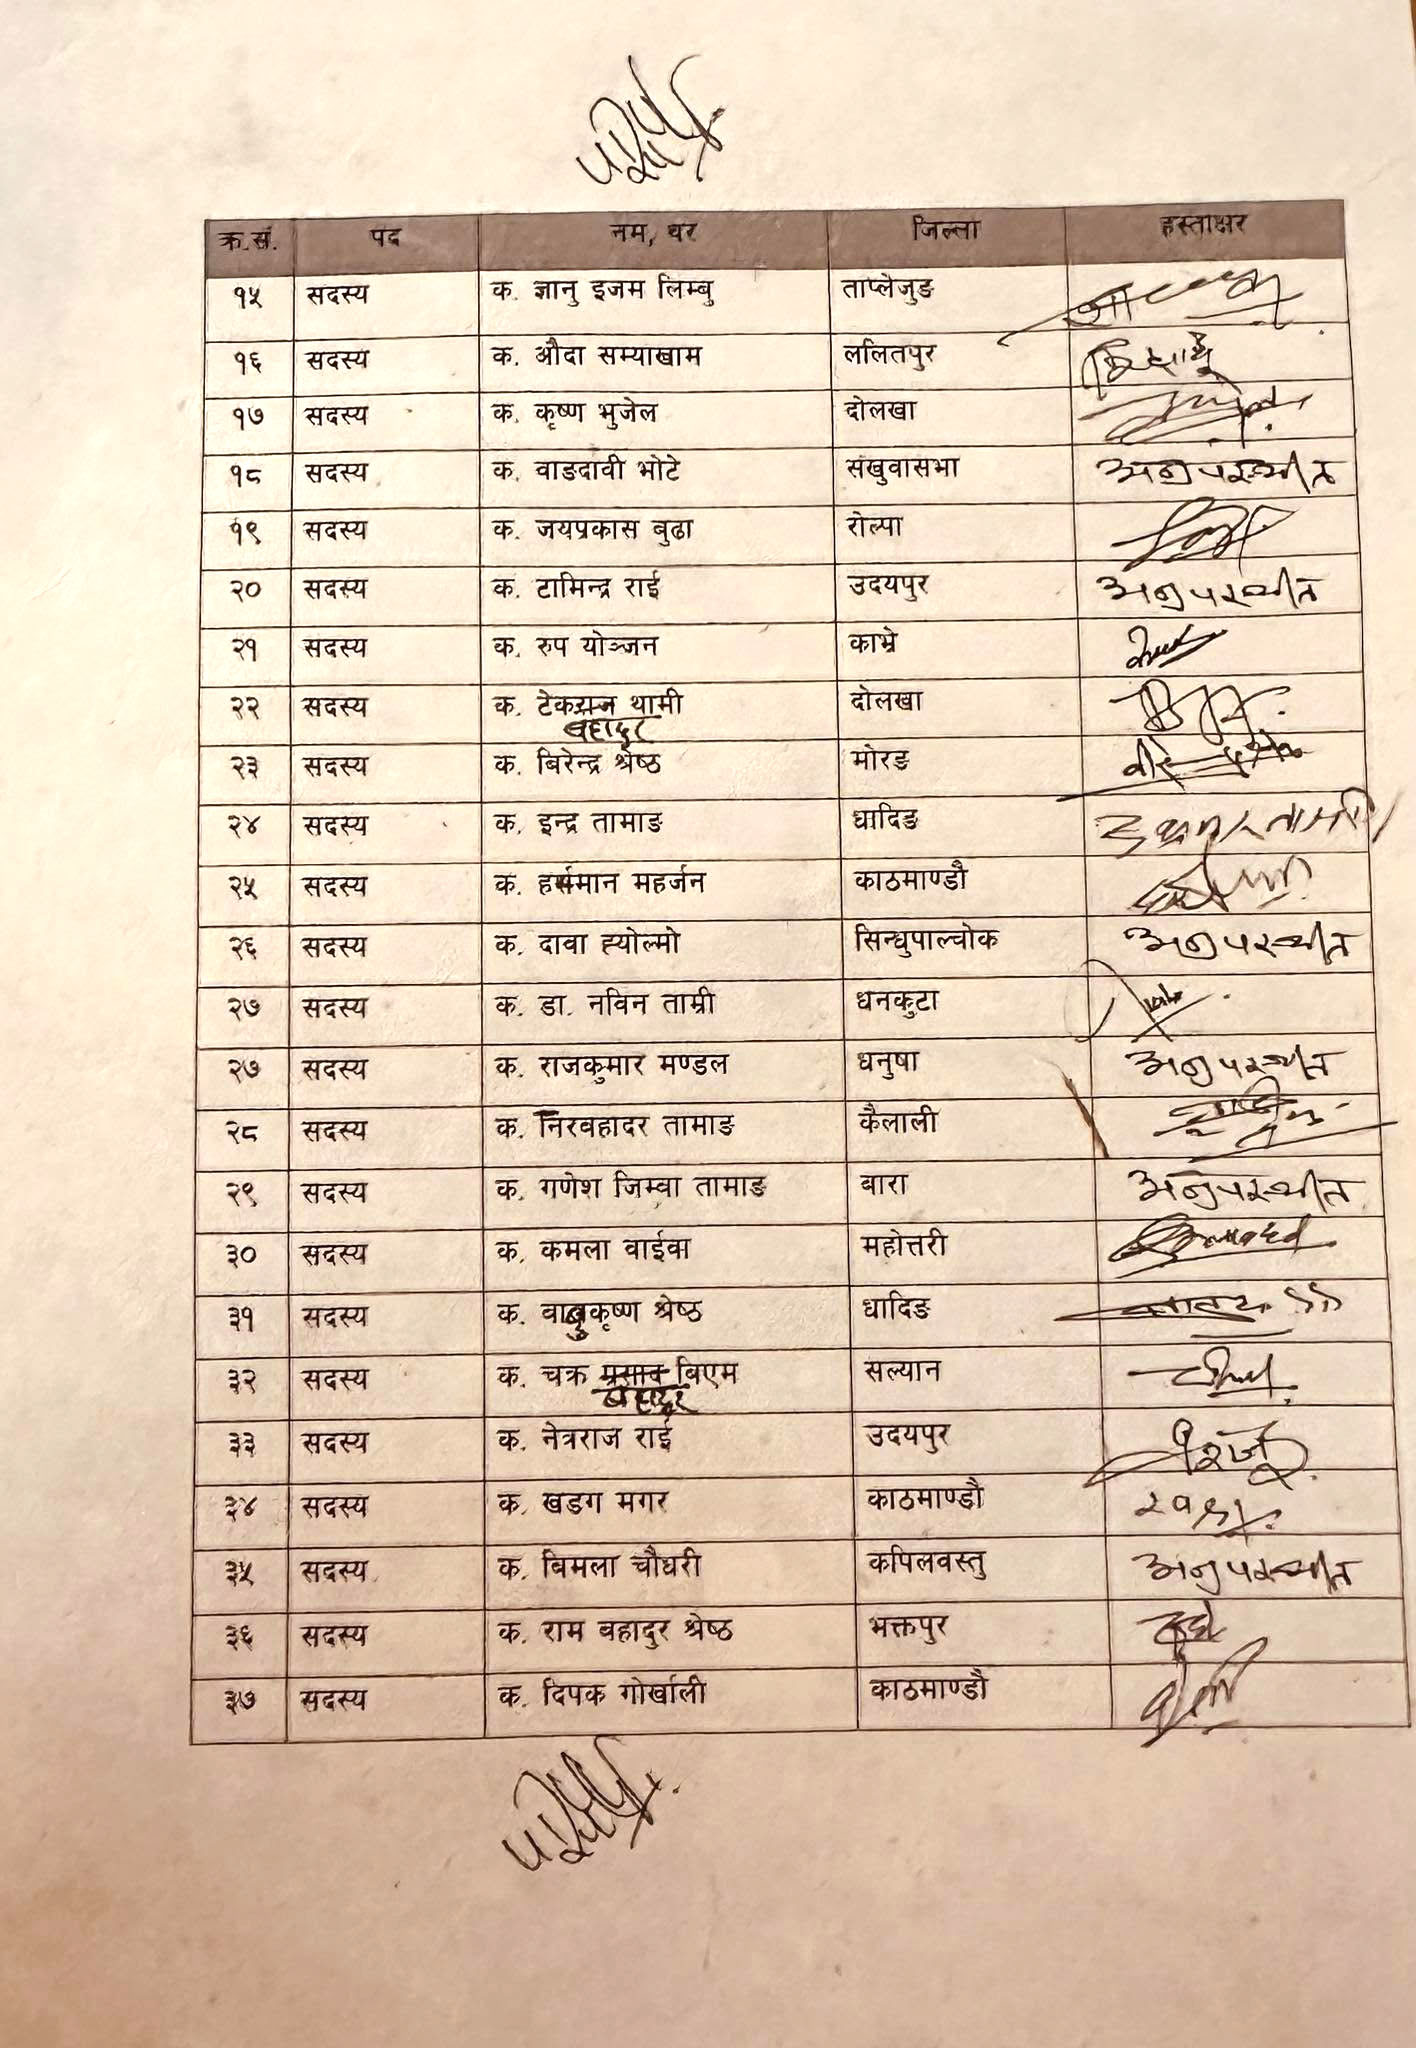 क्र.सं. पद नम, थर जिल्ला हस्ताक्षर
१५ सदस्य क. ज्ञानु इजम लिम्बु ताप्लेजुङ
१६ सदस्य क. औदा सम्याखाम ललितपुर
१७ सदस्य क. कृष्ण भुजेल दोलखा
१८ सदस्य क. वाङदावी भोटे संखुवासभा अनुपस्थीत
१९ सदस्य क. जयप्रकास बुढा रोल्पा
२० सदस्य क. टामिन्द्र राई उदयपुर अनुपस्थीत
२१ सदस्य क. रुप योञ्जन काभ्रे
२२ सदस्य क. टेकराज थामी दोलखा
बहादुर
२३ सदस्य क. बिरेन्द्र श्रेष्ठ मोरङ
२४ सदस्य क. इन्द्र तामाङ धादिङ
२५ सदस्य क. हर्समान महर्जन काठमाण्डौ
२६ सदस्य क. दावा ह्योल्मो सिन्धुपाल्चोक अनुपस्थीत
२७ सदस्य क. डा. नविन ताम्री धनकुटा
२७ सदस्य क. राजकुमार मण्डल धनुषा अनुपस्थीत
२८ सदस्य क. निरबहादर तामाङ कैलाली
२९ सदस्य क. गणेश जिम्वा तामाङ बारा अनुपस्थीत
३० सदस्य क. कमला वाईवा महोत्तरी
३१ सदस्य क. बाबुकृष्ण श्रेष्ठ धादिङ
३२ सदस्य क. चक्र प्रसाद विएम सल्यान
बहादुर
३३ सदस्य क. नेत्रराज राई उदयपुर
३४ सदस्य क. खडग मगर काठमाण्डौ
३५ सदस्य क. बिमला चौधरी कपिलवस्तु अनुपस्थीत
३६ सदस्य क. राम बहादुर श्रेष्ठ भक्तपुर
३७ सदस्य क. दिपक गोर्खाली काठमाण्डौ